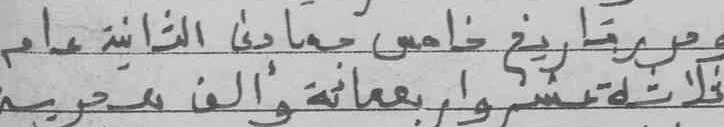 وحرر بتاريخ خامس جمادى الثانية عام
ثلاثة عشر واربعمائة وألف هجرية